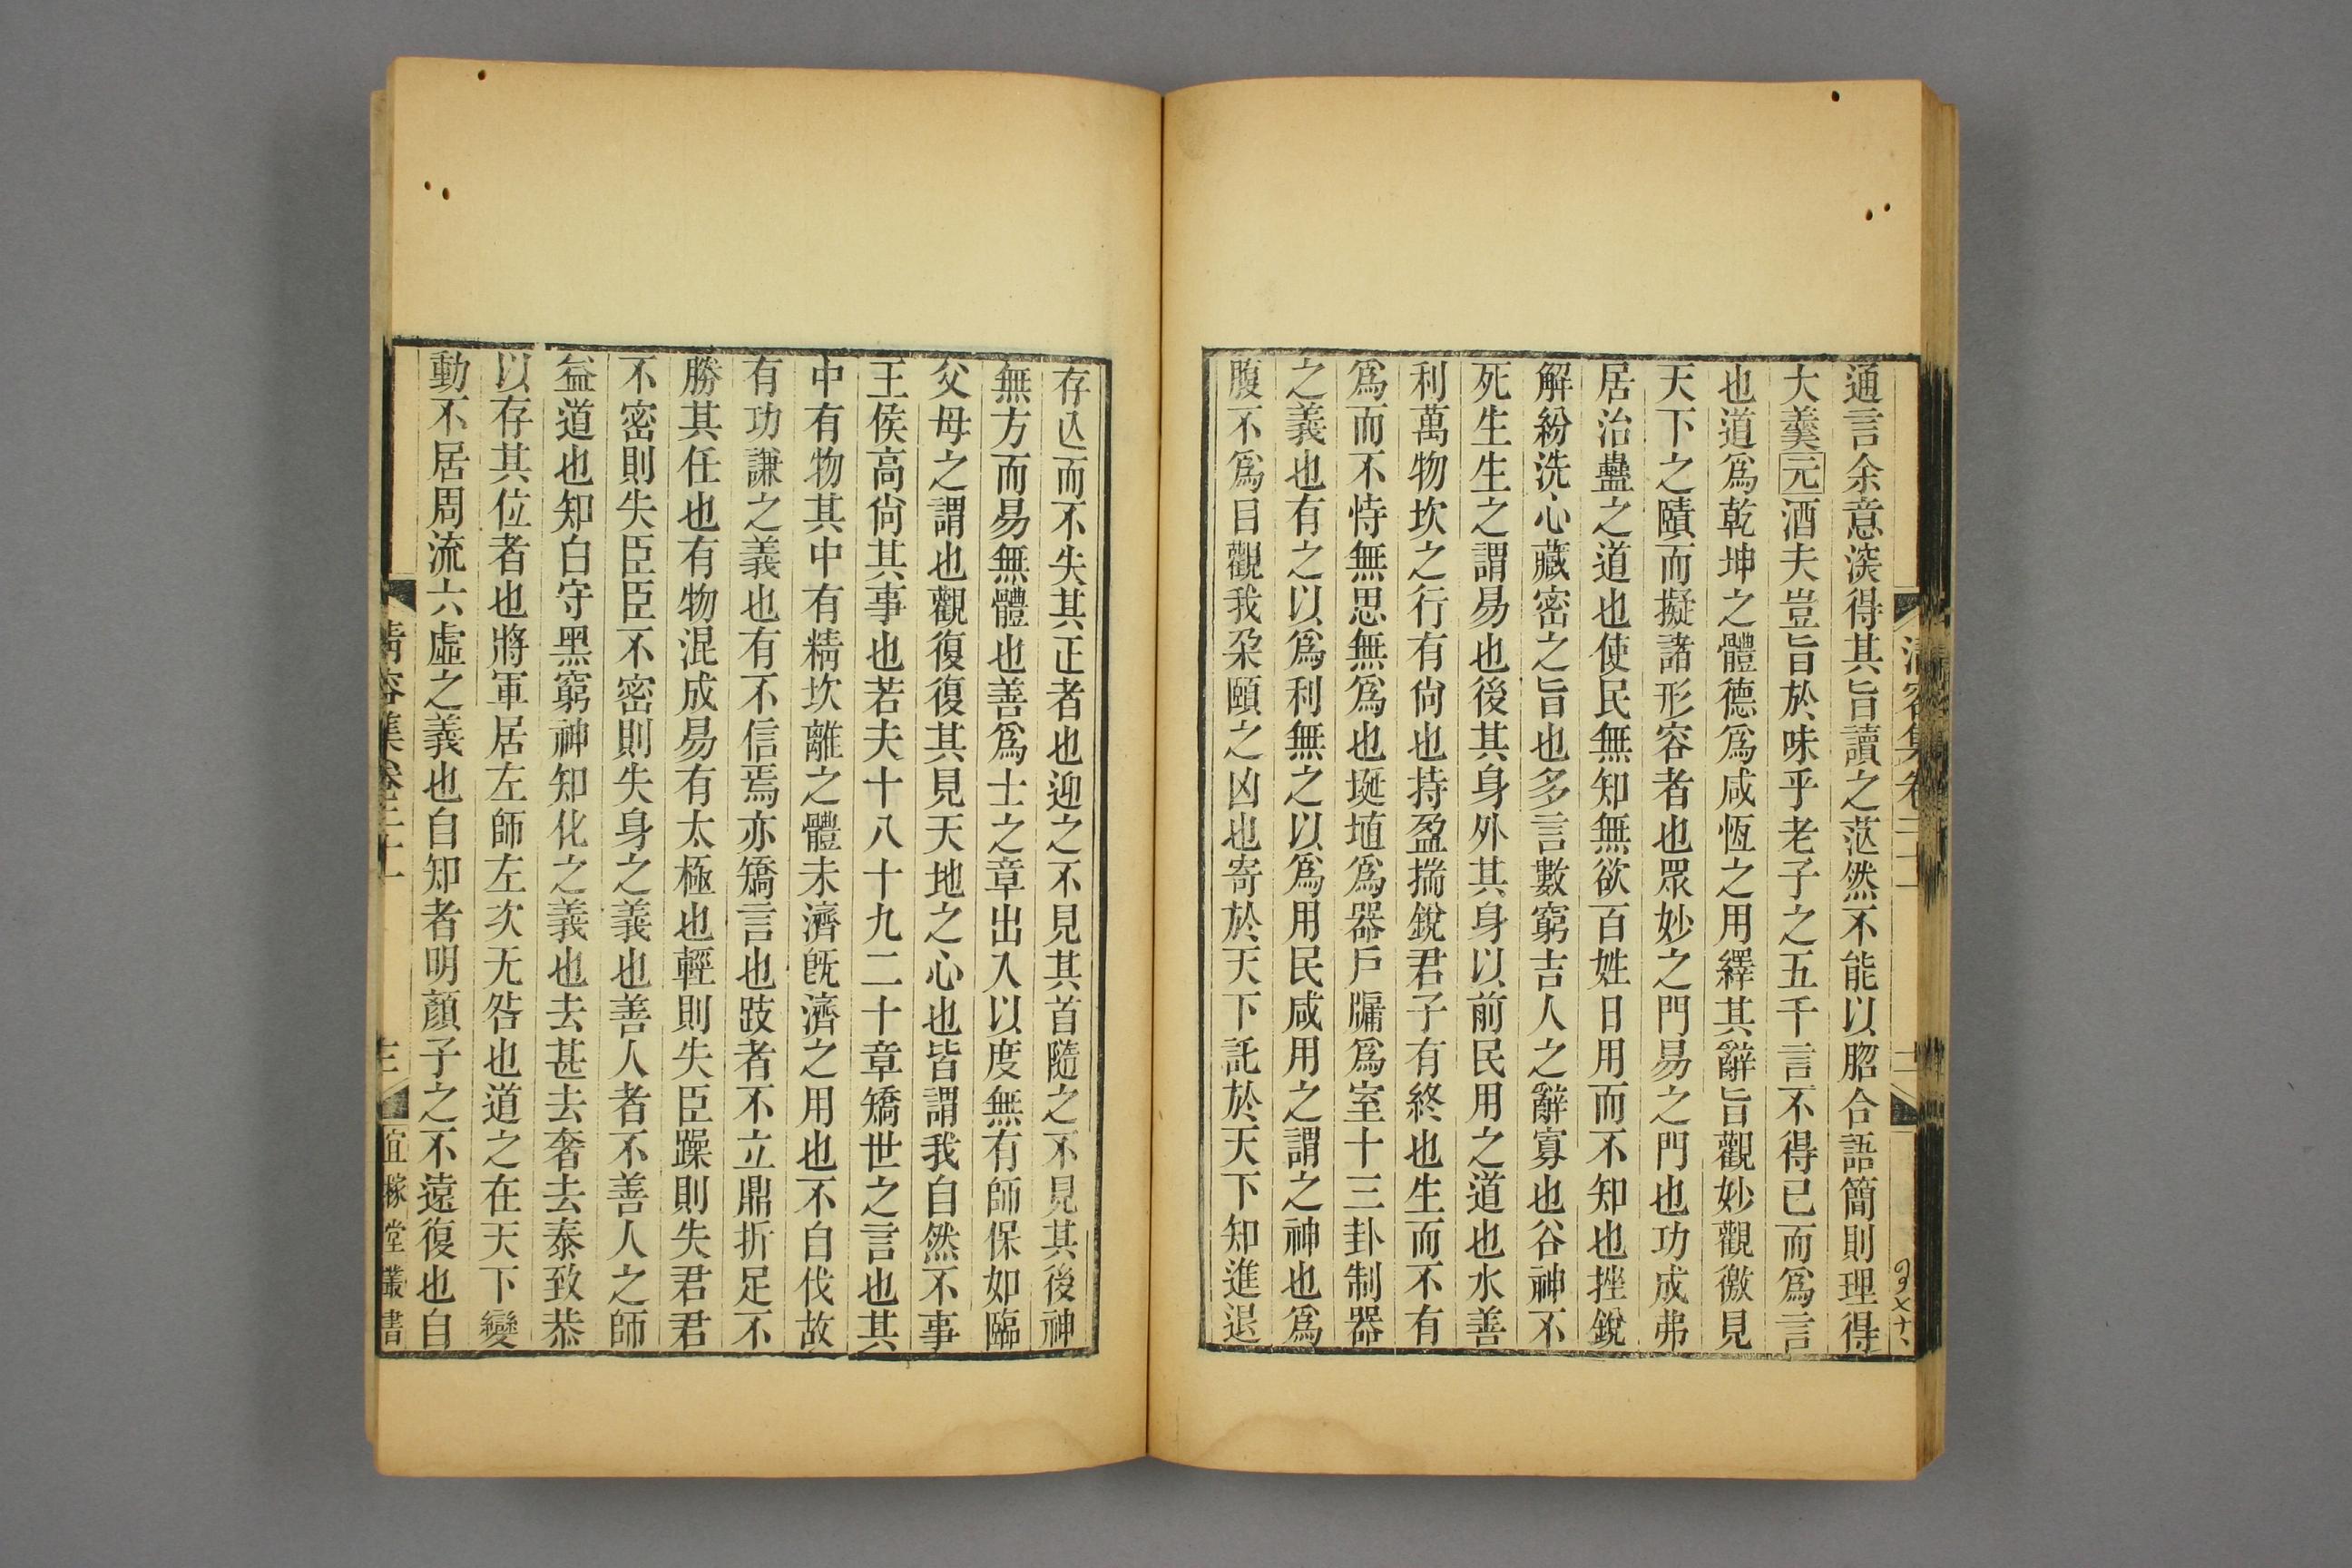 通言余意深得其旨讀之茫然不能以脗合語簡則理得
大羹元酒夫豈旨於味乎老子之五千言不得已而爲言
也道爲乾坤之體德爲咸恆之用繹其辭旨觀妙觀徼見
天下之賾而擬諸形容者也眾妙之門易之門也功成弗
居治蠱之道也使民無知無欲百姓日用而不知也挫銳
解紛洗心藏密之旨也多言數窮吉人之辭寡也谷神不
死生生之謂易也後其身外其身以前民用之道也水善
利萬物坎之行有尙也持盈揣銳君子有終也生而不有
爲而不恃無思無爲也埏埴爲器戶牖爲室十三卦制器
之義也有之以爲利無之以爲用民咸用之謂之神也爲
腹不爲目觀我朶頤之凶也寄於天下託於天下知進退
存亾而不失其正者也迎之不見其首隨之不見其後神
無方而易無體也善爲士之章出入以度無有師保如臨
父母之謂也觀復復其見天地之心也皆謂我自然不事
王侯高尙其事也若夫十八十九二十章矯世之言也其
中有物其中有精坎離之體未濟旣濟之用也不自伐故
有功謙之義也有不信焉亦矯言也跂者不立鼎折足不
勝其任也有物混成易有太極也輕則失臣躁則失君君
不密則失臣臣不密則失身之義也善人者不善人之師
益道也知白守黑窮神知化之義也去甚去奢去泰致恭
以存其位者也將軍居左師左次无咎也道之在天下變
動不居周流六虛之義也自知者明顏子之不遠復也自
清容集卷二十一
三
宜稼堂叢書